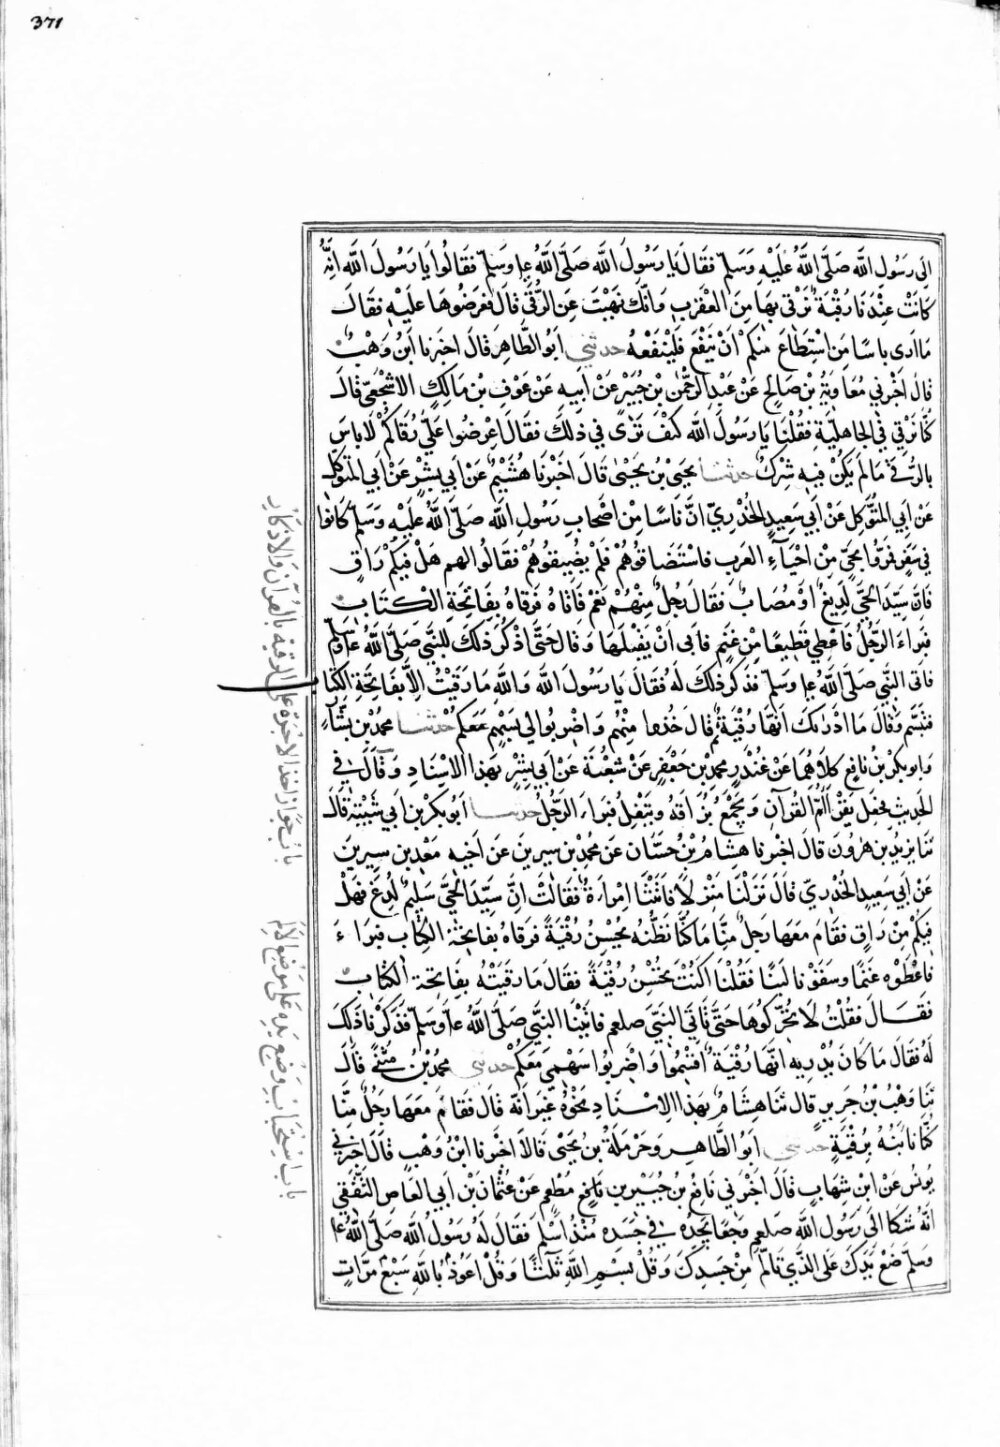 371
الى رسول الله صلى الله عليه وسلم فقال يا رسول الله صلى الله ع‍ا وسلم فقالوا يا رسول الله انه
كانت عندنا رقية نرقى بها من العقرب وانك نهيت عن الرقى قال فعرضوها عليه فقال
ما ارى باسا من استطاع منكم ان ينفع فلينفعه حدثني ابو الطاهر قال اخبرنا ابن وهب
قال اخبرني معاوية بن صالح عن عبد الرحمن بن جبير عن ابيه عن عوف بن مالك الاشجعي قال
كنا نرقي في الجاهلية فقلنا يا رسول الله كيف ترى في ذلك فقال اعرضوا علي رقاكم لا باس
بالرقى ما لم يكن فيه شرك حدثنا يحيى بن يحيى قال اخبرنا هشيم عن ابي بشر عن ابي المتوكل
عن ابي المتوكل عن ابي سعيد الخدري ان ناسا من اصحاب رسول الله صلى الله عليه وسلم كانوا
في سفر فمروا بحي من احياء العرب فاستضافوهم فلم يضيفوهم فقالوا لهم هل فيكم راق
فان سيد الحي لديغ او مصاب فقال رجل منهم نعم فاتاه فرقاه بفاتحة الكتاب
فبراء الرجل فاعطي قطيعا من غنم فابى ان يقبلها وقال حتى اذكر ذلك للنبي صلى الله ع‍ا وسلم
فاتى النبي صلى الله ع‍ا وسلم فذكر ذلك له فقال يا رسول الله والله ما رقيت الا بفاتحة الكتاب
فتبسم وقال ما ادراك انها رقية ثم قال خذوا منهم واضربوا لي بسهم معكم حدثنا محمد بن بشار
وابو بكر بن نافع كلاهما عن غندر محمد بن جعفر عن شعبة عن ابي بشر بهذا الاسناد وقال في
الحديث فجعل يقرا ام القرآن ويجمع بزاقه ويتفل فبرا الرجل حدثنا ابو بكر بن ابي شيبة قال
ثنا يزيد بن هرون قال اخبرنا هشام بن حسان عن محمد بن سيرين عن اخيه معبد بن سيرين
عن ابي سعيد الخدري قال نزلنا منزلا فاتتنا امراة فقالت ان سيد الحي سليم لدغ فهل
فيكم من راق فقام معها رجل منا ما كنا نظنه يحسن رقية فرقاه بفاتحة الكتاب فبراء
فاعطوه غنما وسقونا لبنا فقلنا اكنت تحسن رقية فقال ما رقيته بفاتحة الكتاب
فقال فقلت لا تحركوها حتى ناتي النبي صلعم فاتينا النبي صلى الله ع‍ا وسلم فذكرنا ذلك
له فقال ما كان يدريه انها رقية اقتسموا واضربوا بسهمي معكم حدثني محمد بن مثنى قال
ثنا وهب بن جرير قال ثنا هشام بهذا الاسناد نحوه غير انه قال فقام معها رجل منا
كنا نابنه برقية حدثني ابو الطاهر وحرملة بن يحيى قالا اخبرنا ابن وهب قال اخبرني
يونس عن ابن شهاب قال اخبرني نافع بن جبير بن مطعم عن عثمان بن ابي العاص الثقفي
انه شكا الى رسول الله صلعم وجعا يجده في جسده منذ اسلم فقال له رسول الله صلى الله ع‍ا
وسلم ضع يدك على الذي تالم من جسدك وقل بسم الله ثلاثا وقل اعوذ بالله سبع مرات
باب جواز اخذ الاجرة على الرقية بالقرآن والاذكار
باب استحباب وضع يده على موضع الالم